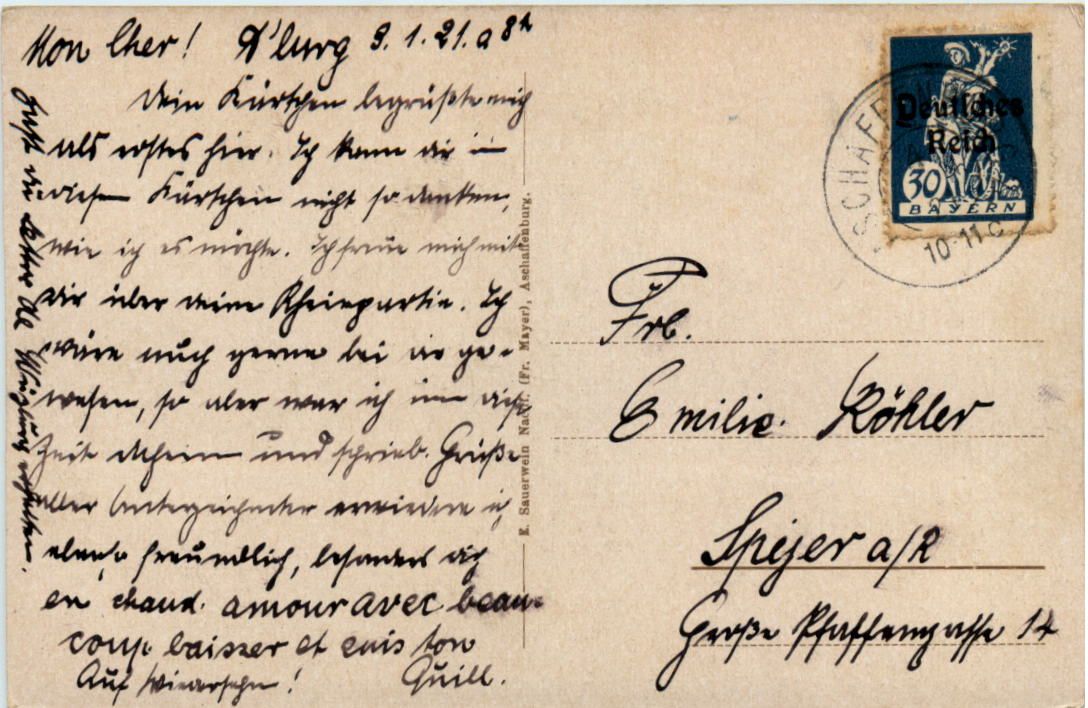 Mon Cher! A'burg 3.1.21. a 8h
Dein Kärtchen begrüßte mich
als erstes hier. Ich kann dir in
diesem Kärtchen nicht so danken,
wie ich es möchte. Ich freue mich mit
dir über deine Rheinpartie. Ich
wäre auch gerne bei dir ge-
wesen, so aber war ich um diese
Zeit daheim und schrieb. Grüße
aller Unterzeichneter erwiedere ich
ebenso freundlich, besonders dich
en chaud. amour avec beau-
coup baisser et suis ton
Auf Wiedersehn! Quill.
Hast du lettre de erhalten.
E. Sauerwein Nachf. (Fr. Mayer), Aschaffenburg.
Deutsches
Reich
30
BAYERN
ASCHAFF
10-11
Frl.
Emilie Köhler
Speyer a/R
Große Pfaffengasse 14